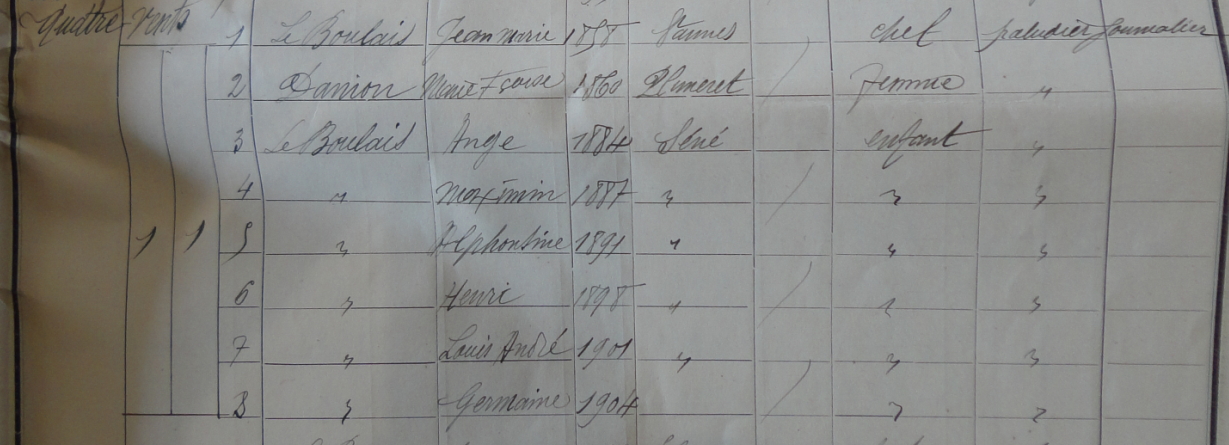 Quatre Vents 1 Le Boulais Jean Marie 1858 Vannes / chef paludier Journalier
2 Danion Marie Fçoise 1860 Plumeret / femme "
3 Le Boulais Ange 1884 Séné enfant "
4 " Maximin 1887 " / " "
1 1 5 " Alphonsine 1891 " " "
6 " Henri 1898 " / " "
7 " Louis André 1901 " " "
8 " Germaine 1904 / " "